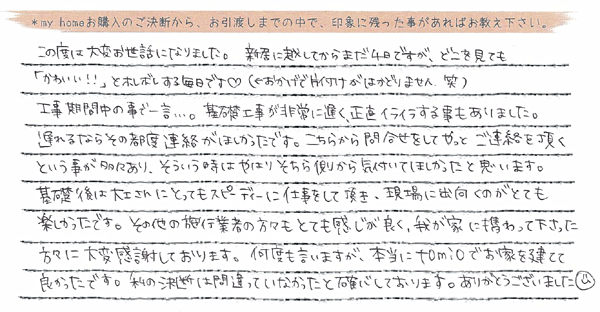 *my homeお購入のご決断から、お引渡しまでの中で、印象に残った事があればお教え下さい。
この度は大変お世話になりました。新居に越してからまだ4日ですが、どこを見ても
「かわいい!!」とホレボレする毎日です♡(←おかげで片付けがはかどりません 笑)
工事期間中の事で一言…。基礎工事が非常に遅く、正直イライラする事もありました。
遅れるならその都度連絡がほしかったです。こちらから問合せをしてやっとご連絡を頂く
という事が多々あり、そういう時はやはりそちら側から気付いてほしかったと思います。
基礎後は大工さんにとってもスピーディーに仕事をして頂き、現場に出向くのがとても
楽しかったです。その他の施行業者の方々もとても感じが良く、我が家に携わって下さった
方々に大変感謝しております。何度も言いますが、本当にtomioでお家を建てて
良かったです。私の決断は間違っていなかったと確心しております。ありがとうございました☺